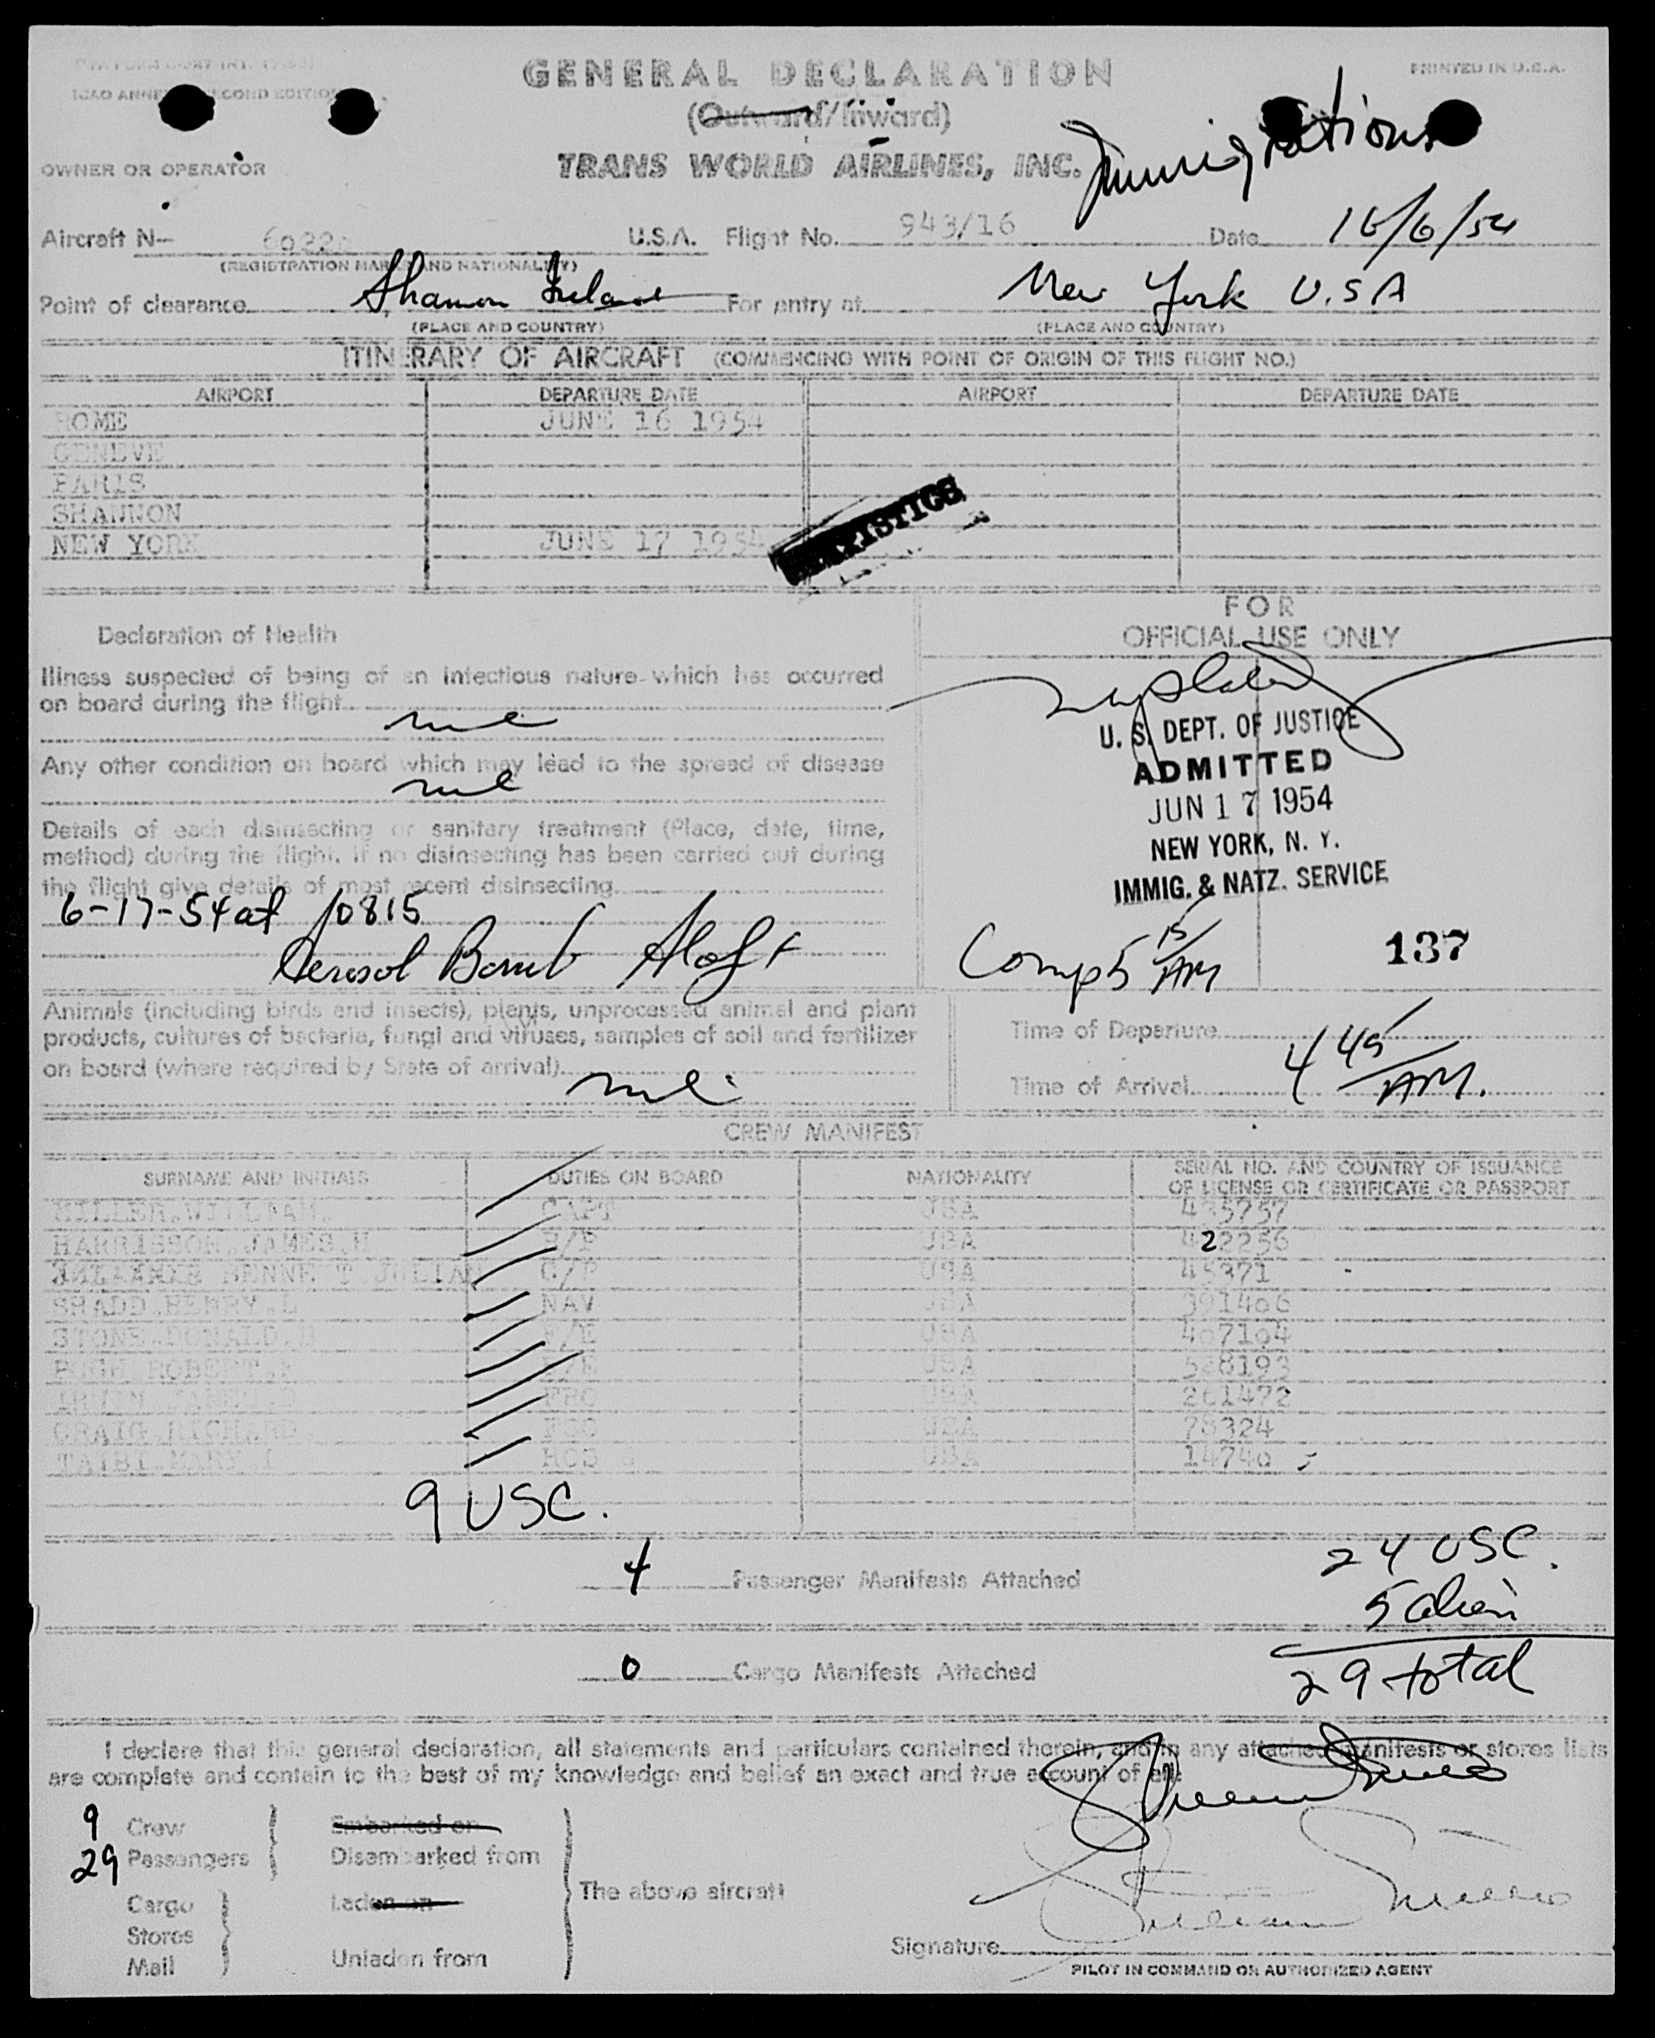 GENERAL DECLARATION
PRINTED IN U.S.A.
(Outward/Inward)
Immigrations
OWNER OR OPERATOR
TRANS WORLD AIRLINES, INC.
Aircraft N— U.S.A. Flight No. 943/16 Date 16/6/54
(REGISTRATION MARK AND NATIONALITY)
Point of clearance Shannon Ireland For entry at New York U.S.A
(PLACE AND COUNTRY) (PLACE AND COUNTRY)
ITINERARY OF AIRCRAFT (COMMENCING WITH POINT OF ORIGIN OF THIS FLIGHT NO.)
AIRPORT DEPARTURE DATE AIRPORT DEPARTURE DATE
ROME JUNE 16 1954
GENEVE
PARIS
SHANNON
NEW YORK JUNE 17 1954
STATISTICS
FOR
OFFICIAL USE ONLY
Declaration of Health
Illness suspected of being of an infectious nature which has occurred
on board during the flight
nil
Any other condition on board which may lead to the spread of disease
nil
Details of each disinsecting or sanitary treatment (Place, date, time,
method) during the flight. If no disinsecting has been carried out during
the flight give details of most recent disinsecting
6-17-54 at 0815
Aerosol Bomb Aloft
U. S. DEPT. OF JUSTICE
ADMITTED
JUN 17 1954
NEW YORK, N. Y.
IMMIG. & NATZ. SERVICE
Comp 5 15/AM 137
Animals (including birds and insects), plants, unprocessed animal and plant
products, cultures of bacteria, fungi and viruses, samples of soil and fertilizer
on board (where required by State of arrival)
nil
Time of Departure
Time of Arrival 4 45/AM.
CREW MANIFEST
SURNAME AND INITIALS DUTIES ON BOARD NATIONALITY SERIAL NO. AND COUNTRY OF ISSUANCE
OF LICENSE OR CERTIFICATE OR PASSPORT
CAPT USA
HARRISSON.JAMES.H USA 422256
USA 45371
SHADD.HENRY.L NAV USA 391406
STONE.DONALD. F/E USA 407104
ROBERT USA
USA 261472
CRAIG.RICHARD USA 78324
TAIBI.MARY.I HOS USA 14740
9 USC.
24 USC.
4 Passenger Manifests Attached
5 alien
0 Cargo Manifests Attached
29 total
I declare that this general declaration, all statements and particulars contained therein, and in any attached manifests or stores lists
are complete and contain to the best of my knowledge and belief an exact and true account of all
9 Crew Embarked on
29 Passengers Disembarked from
Cargo Laden on The above aircraft
Stores
Mail Unladen from
Signature
PILOT IN COMMAND OR AUTHORIZED AGENT